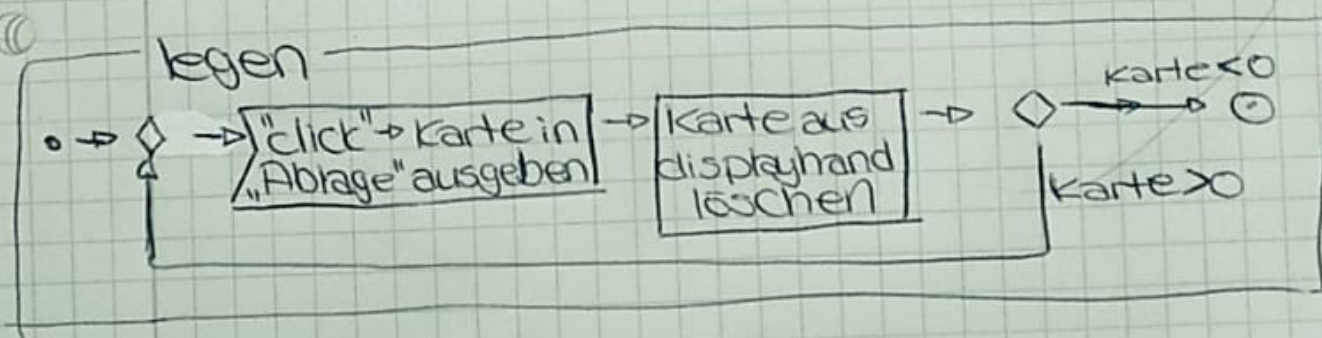 legen
Karte<0
"click"→ Karte in
„Ablage" ausgeben
Karte aus
displayhand
löschen
Karte>0